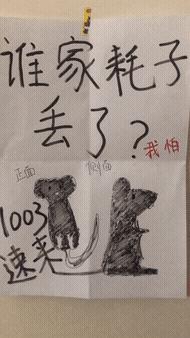 谁家耗子
丢了?
我怕
正面
侧面
1003
速来